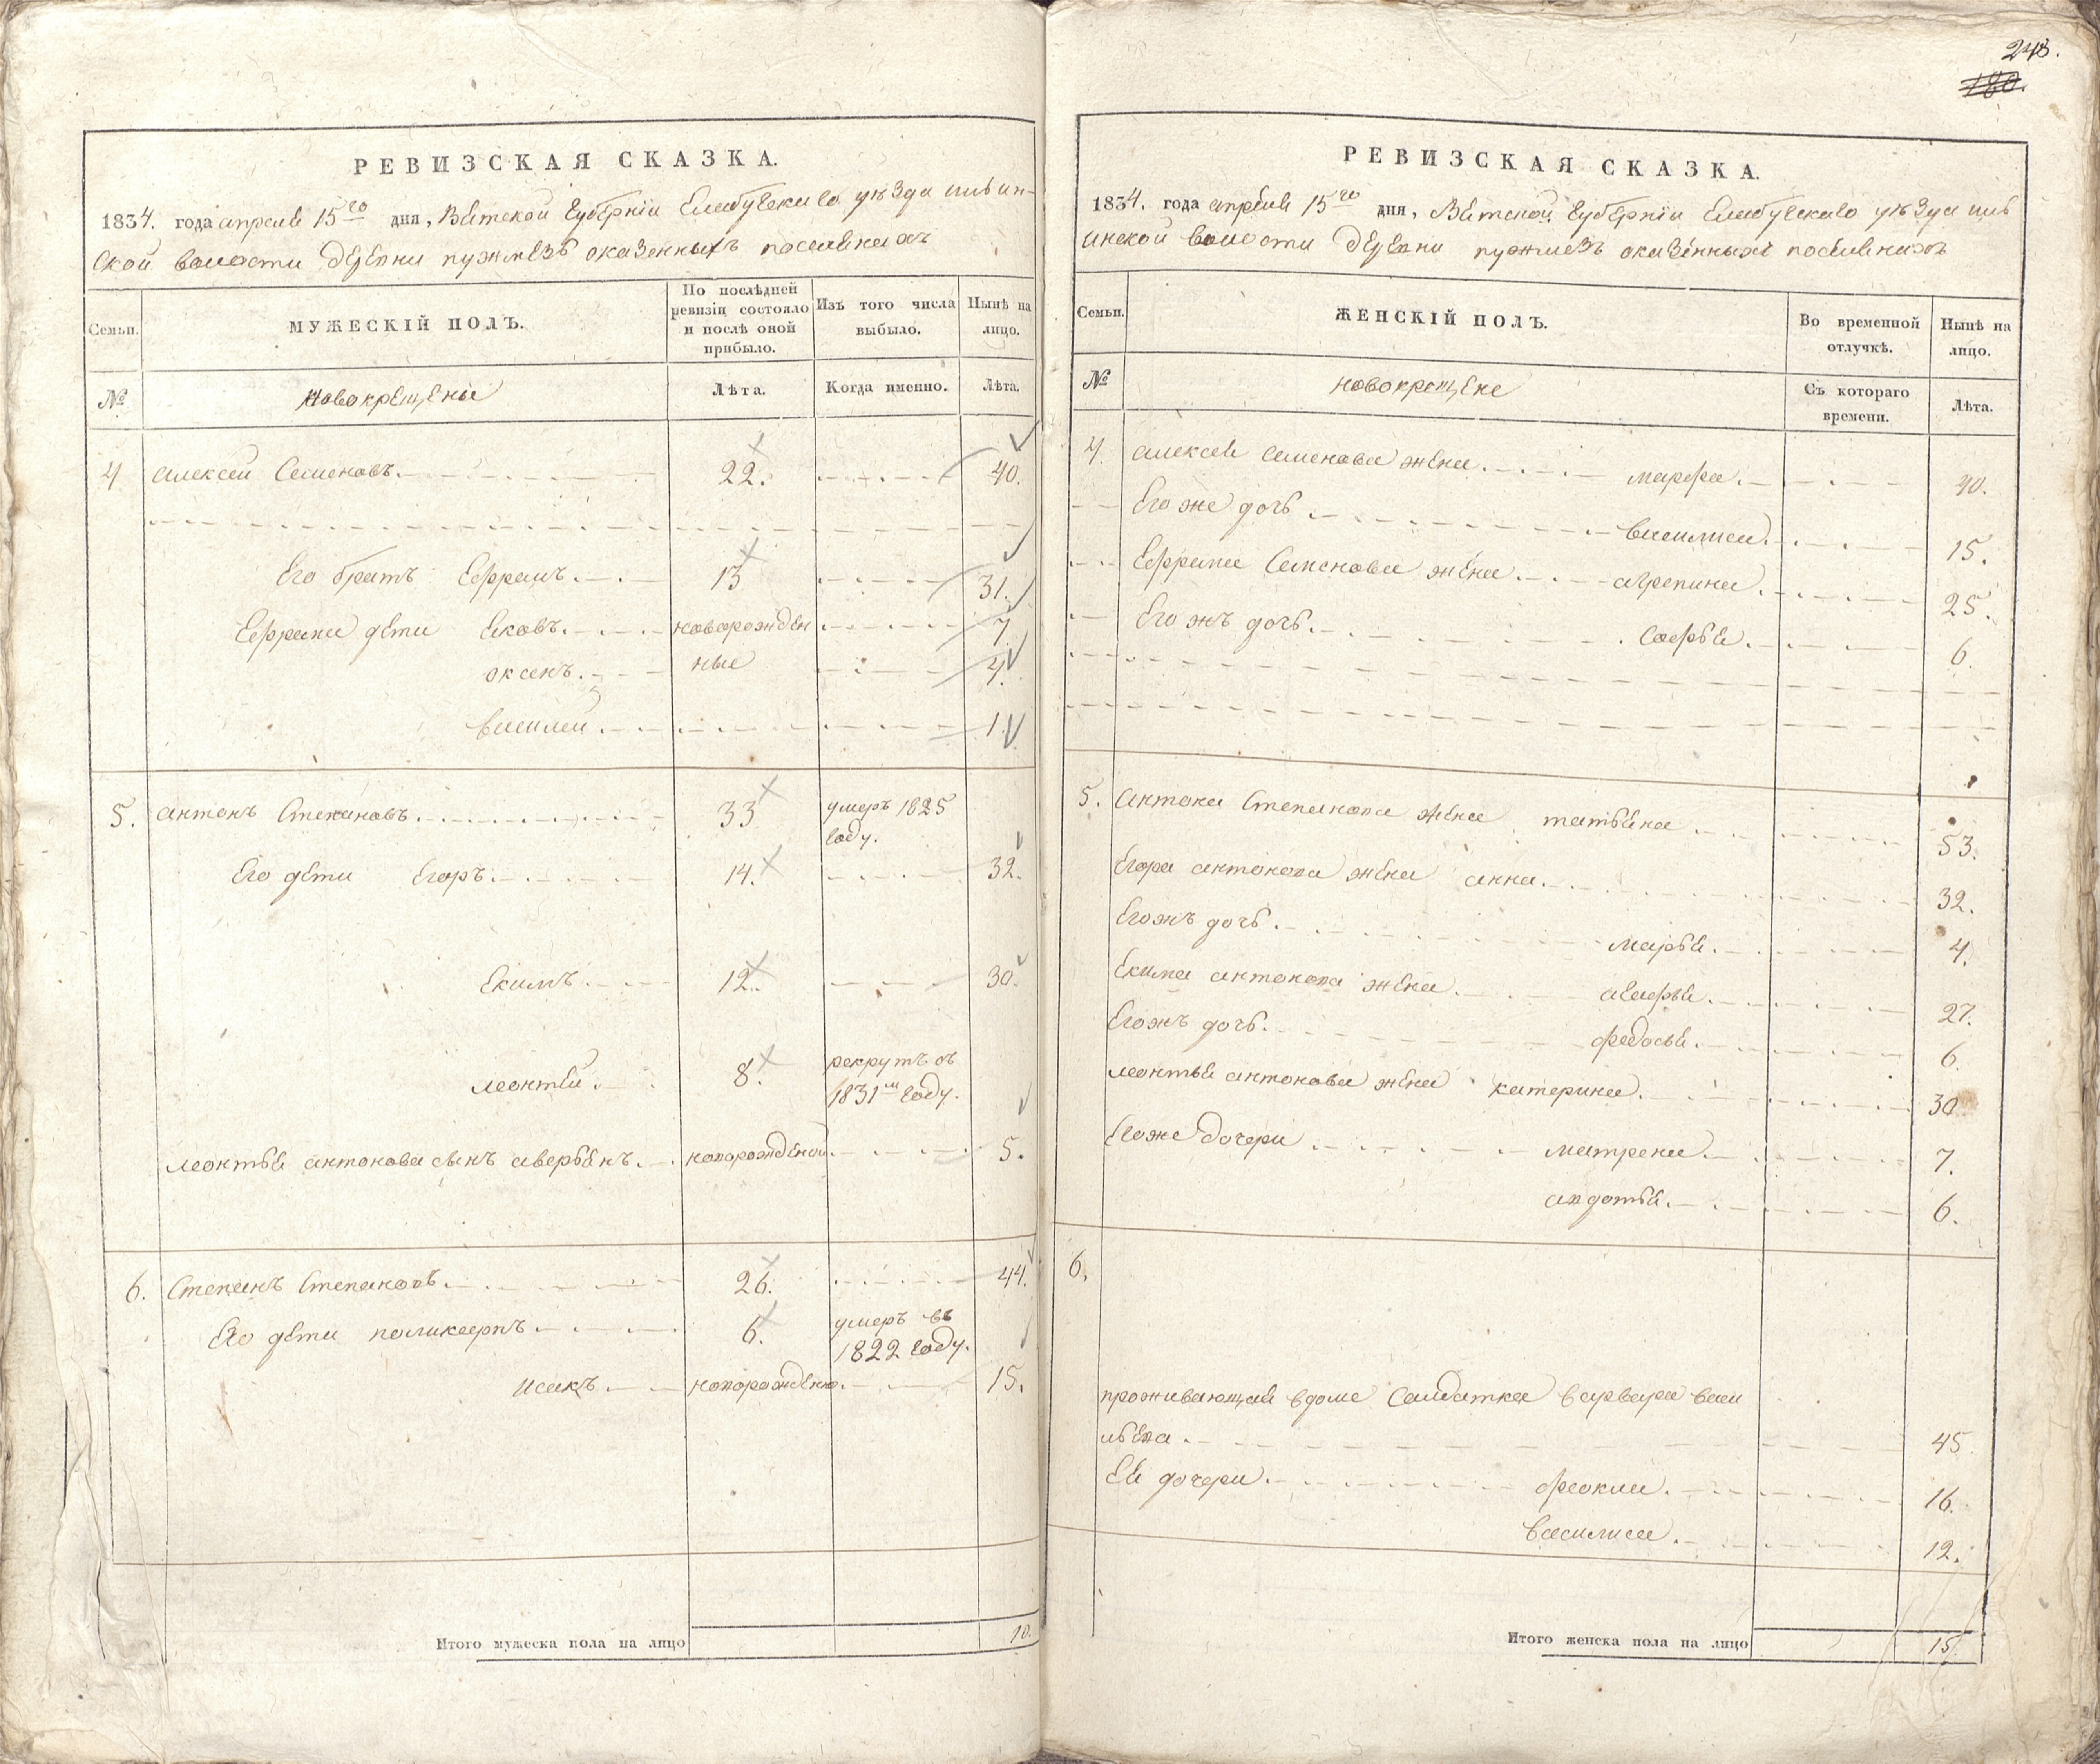 243.
180.
РЕВИЗСКАЯ СКАЗКА.
1834. года апреля 15го дня, Вятской губернїи Елабускаго уѣзда
ской волости деревни пужмезь оказенныхъ поселянахъ
Семьи.
МУЖЕСКІЙ ПОЛЪ.
По послѣдней ревизіи состояло и послѣ оной прибыло.
Изъ того числа выбыло.
Нынѣ на лицо.
№
Новокрещены
Лѣта.
Когда именно.
Лѣта.
4 алексей Семеновъ. 22. 40.
Его братъ Ефремъ. 13 31.
Ефрема дети Яковъ. новорожден 7.
оксенъ. ные 4.
василей. 1.
5. антонъ Степановъ. 33 умеръ 1825
году.
Его дети Егоръ. 14. 32.
Екимъ. 12. 30.
леонтей. 8. рекрутъ въ
1831м году.
леонтья антонова сынъ аверьянъ. новорожденой. 5.
6. Степанъ Степановъ. 26. 44.
Его дети поликарпъ 6. умеръ въ
1822 году.
исакъ. новорожденой. 15.
Итого мужеска пола на лицо 10.
РЕВИЗСКАЯ СКАЗКА.
1834. года апреля 15го дня, Вятской губернїи Елабускаго уѣзда
инской волости деревни пужмезъ оказенныхъ поселянахъ
Семьи.
ЖЕНСКІЙ ПОЛЪ.
Во временной отлучкѣ.
Нынѣ на лицо.
№
новокрещене
Съ котораго времени.
Лѣта.
4. алексея семенова жена. марфа. 40.
Его же дочь василиса. 15.
Ефрема Семенова жена. агрепина. 25.
Его жъ дочь. софья. 6.
5. антона Степанова жена татьяна 53.
Егора антонова жена анна. 32.
Егожъ дочь. марья. 4.
Екима антонова жена. агафья. 27.
Егожъ дочь. федосья. 6.
леонтья антонова жена катерина. 30
Егоже дочери матрена. 7.
авдотья. 6.
6.
проживающая вдоме Салдатка варвара васи
льева. 45
Ея дочери. феокла. 16.
василиса. 12.
Итого женска пола на лицо 15.